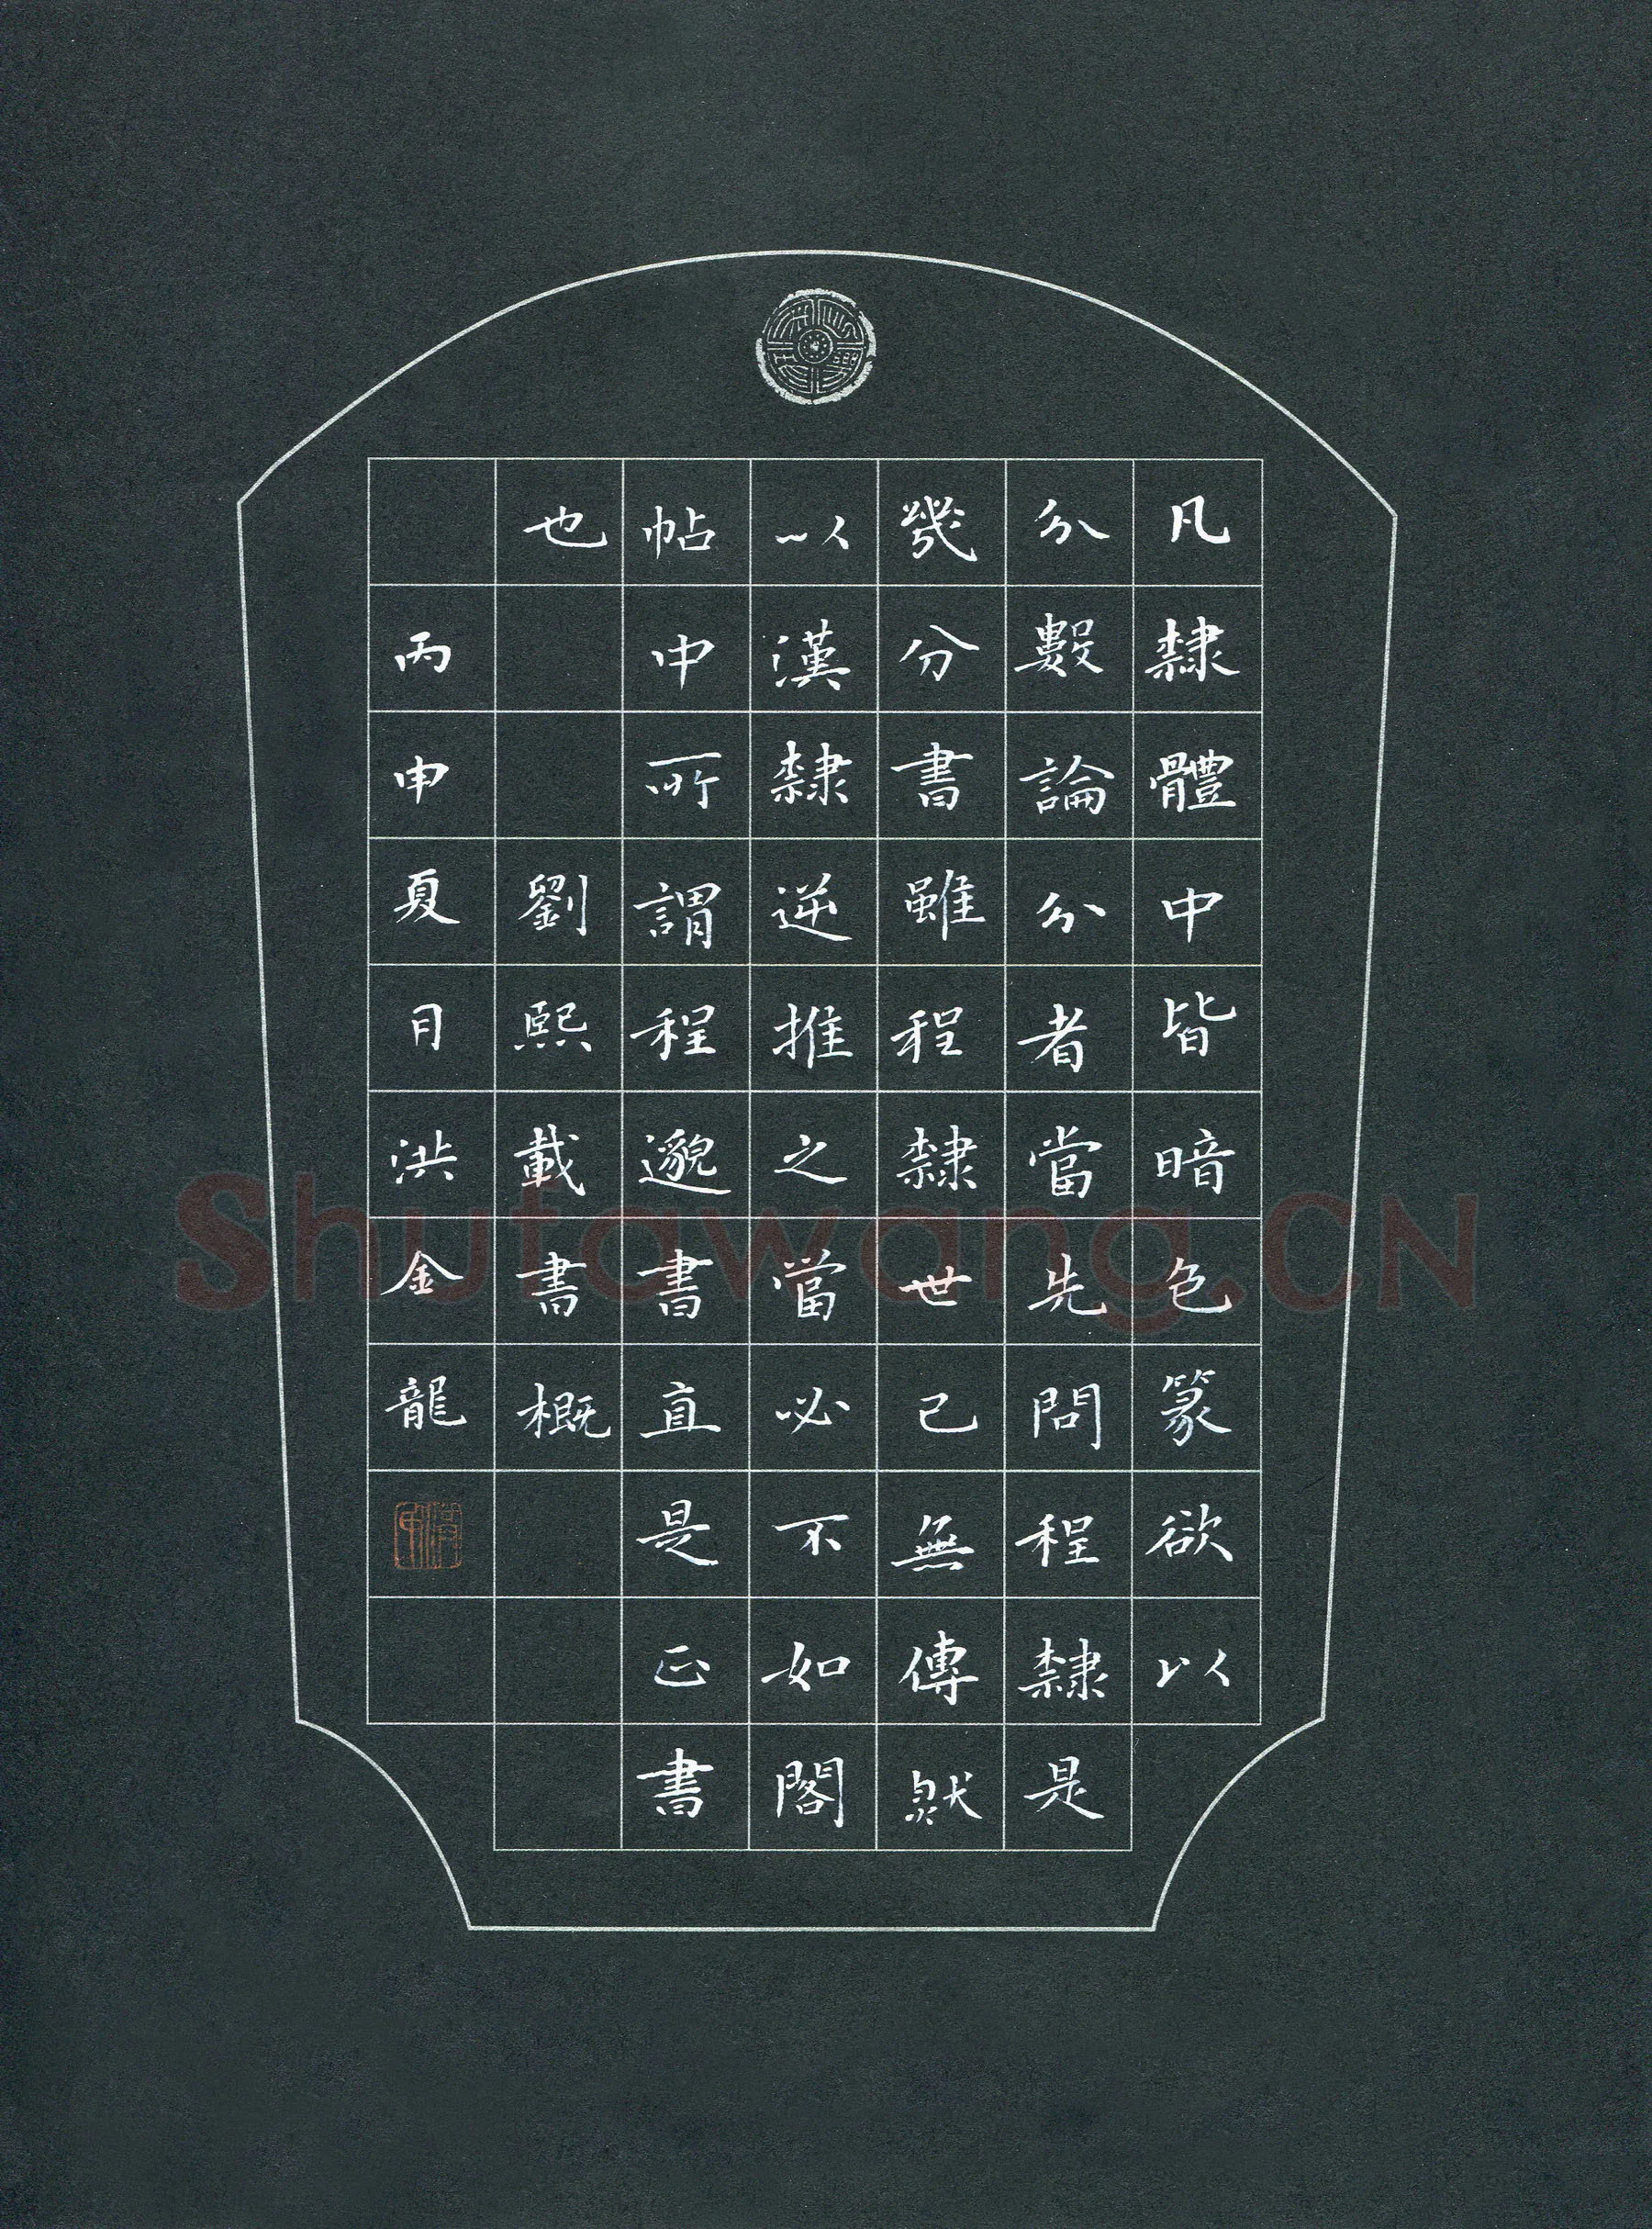 凡隸體中皆暗色篆欲以
分數論分者當先問程隸是
幾分書雖程隸世已無傳然
以漢隸逆推之當必不如閣
帖中所謂程邈書直是正書
也
劉熙載書概
丙申夏月洪金龍
Shufawang.CN